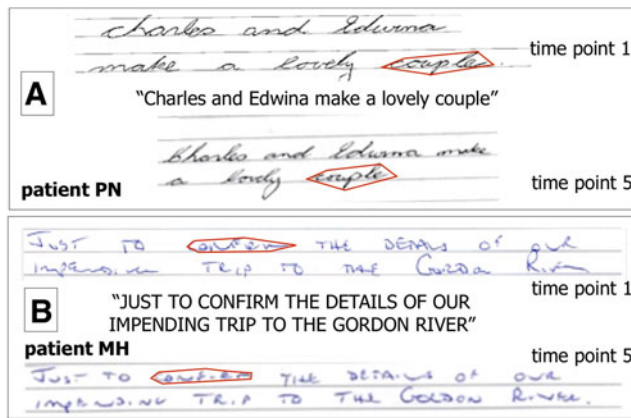 charles and Edwina
make a lovely couple.
time point 1
A
"Charles and Edwina make a lovely couple"
Charles and Edwina make
a lovely couple
patient PN
time point 5
JUST TO CONFIRM THE DETAILS OF OUR
IMPENDING TRIP TO THE GORDON RIVER
time point 1
B
"JUST TO CONFIRM THE DETAILS OF OUR
IMPENDING TRIP TO THE GORDON RIVER"
patient MH
time point 5
JUST TO CONFIRM THE DETAILS OF OUR
IMPENDING TRIP TO THE GORDON RIVER.